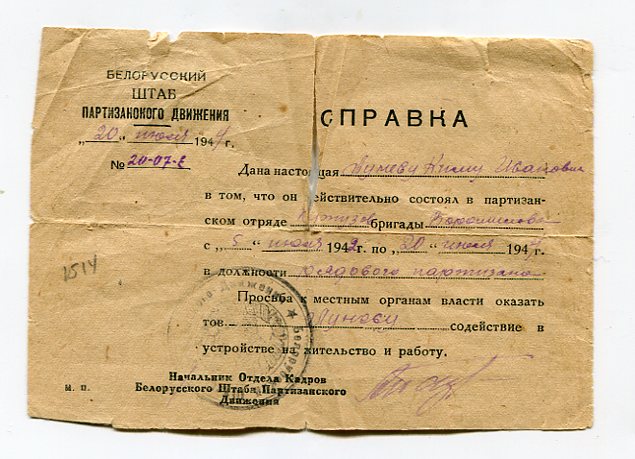 БЕЛОРУССКИЙ
ШТАБ
ПАРТИЗАНСКОГО ДВИЖЕНИЯ
„20“ июля 1944 г.
№ 20-07-
СПРАВКА
Дана настоящая Киму Иванович
в том, что он действительно состоял в партизан-
ском отряде бригады Ворошилова
с „5“ июля 1942 г. по „20“ июля 1944
в должности рядового партизана
Просьба к местным органам власти оказать
тов. содействие в
устройстве на жительство и работу.
2514
Начальник Отдела Кадров
Белорусского Штаба Партизанского
Движения
М. П.